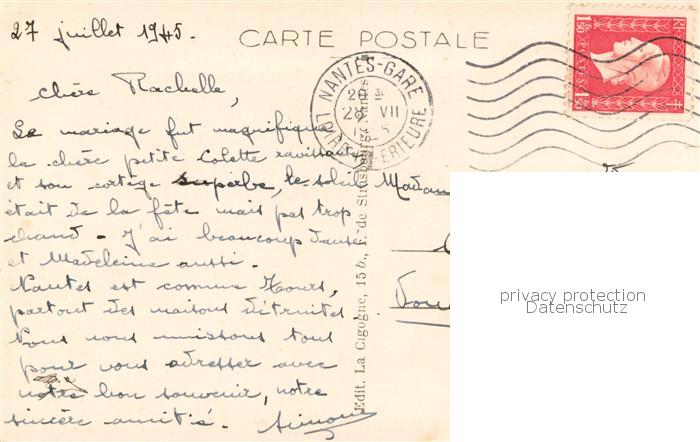 27 juillet 1945.
CARTE POSTALE
Chère Rachelle,
Le mariage fut magnifique
la chère petite Colette ravissante
et son cortège superbe, le soleil
était de la fête mais pas trop
chaud - J'ai beaucoup dansé
et Madeleine aussi.
Nantes est comme Tours,
partout des maisons détruites
Nous nous unissons tous
pour vous adresser avec
notre bon souvenir, notre
sincère amitié. Simone
Edit. La Cigogne, 15b, r. de Strasbourg, Nantes
NANTES-GARE
LOIRE INFÉRIEURE
28 VII
1F50
POSTES
1F50
Madam
privacy protection
Datenschutz